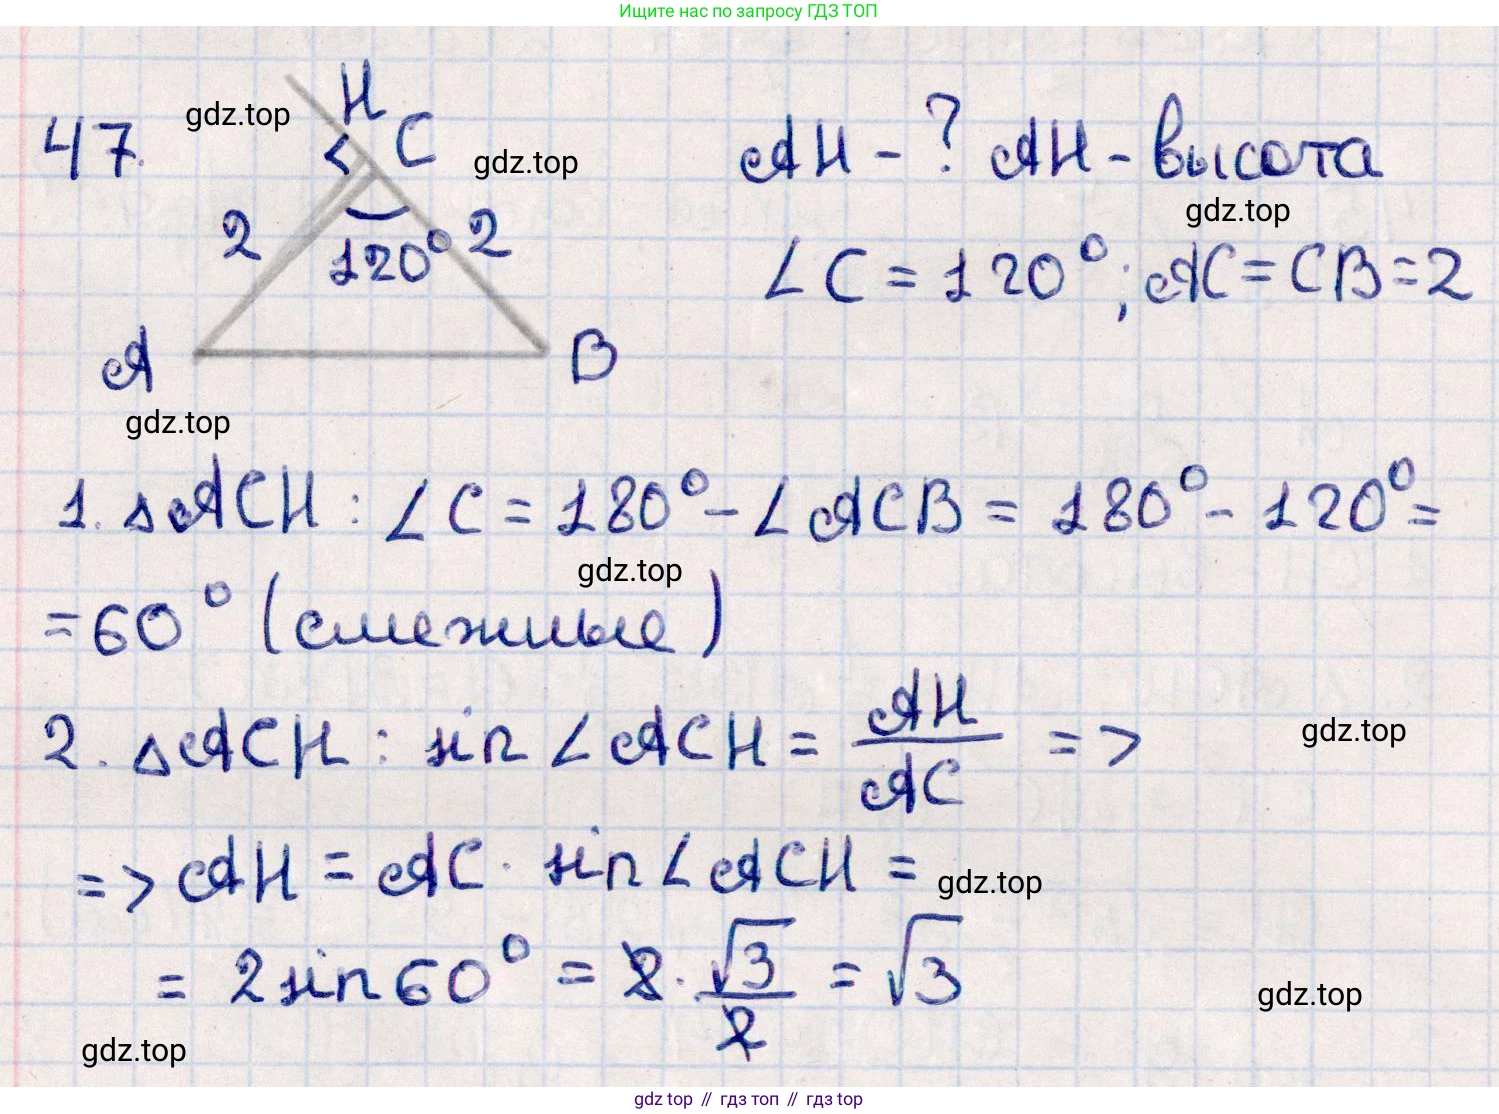 Ищите нас по запросу ГДЗ ТОП
47.
gdz.top
H
C
gdz.top
2
120° 2
A
B
gdz.top
AH - ? AH - высота
gdz.top
∠C = 120°; AC = CB = 2
1. △ACH: ∠C = 180° - ∠ACB = 180° - 120° =
gdz.top
= 60° (смежные)
2. △ACH: sin ∠ACH = AH/AC =>
gdz.top
=> AH = AC · sin ∠ACH =
gdz.top
= 2 sin 60° = 2 · √3/2 = √3
gdz.top
gdz.top
gdz top // гдз топ // гдз top